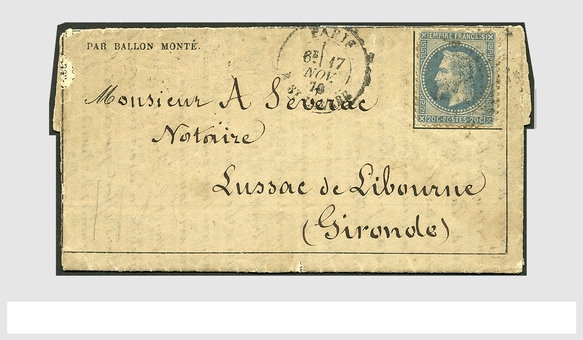 PAR BALLON MONTÉ.
PARIS
1
6E 17
NOV.
70
EMPIRE FRANÇAIS
20 C - POSTES - 20 C
Monsieur A Séverac
Notaire
Lussac de Libourne
(Gironde)